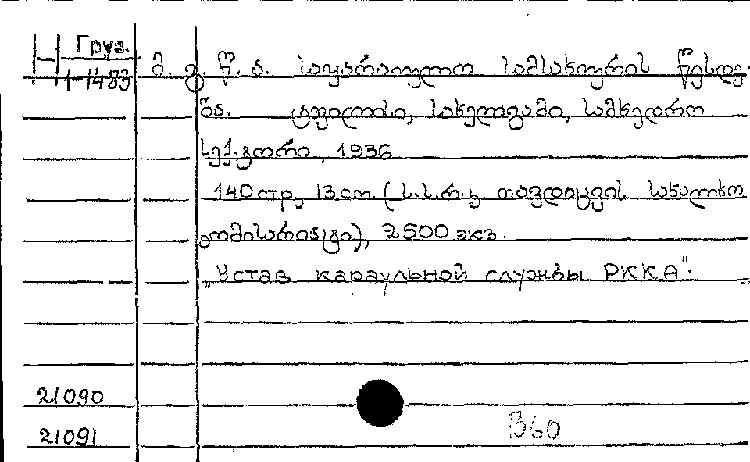 Груз.
1-1483 მ. გ. წ. ა. საყარაულო სამსახურის წესდე-
ბა. ტფილისი, სახელგამი, სამხედრო
სექტორი, 1936
140 стр, 13 cm. (ს.ს.რ.კ თავდაცვის სახალხო
კომისარიატი), 2500 экз.
„Устав караульной службы РККА".
21090
21091
В60